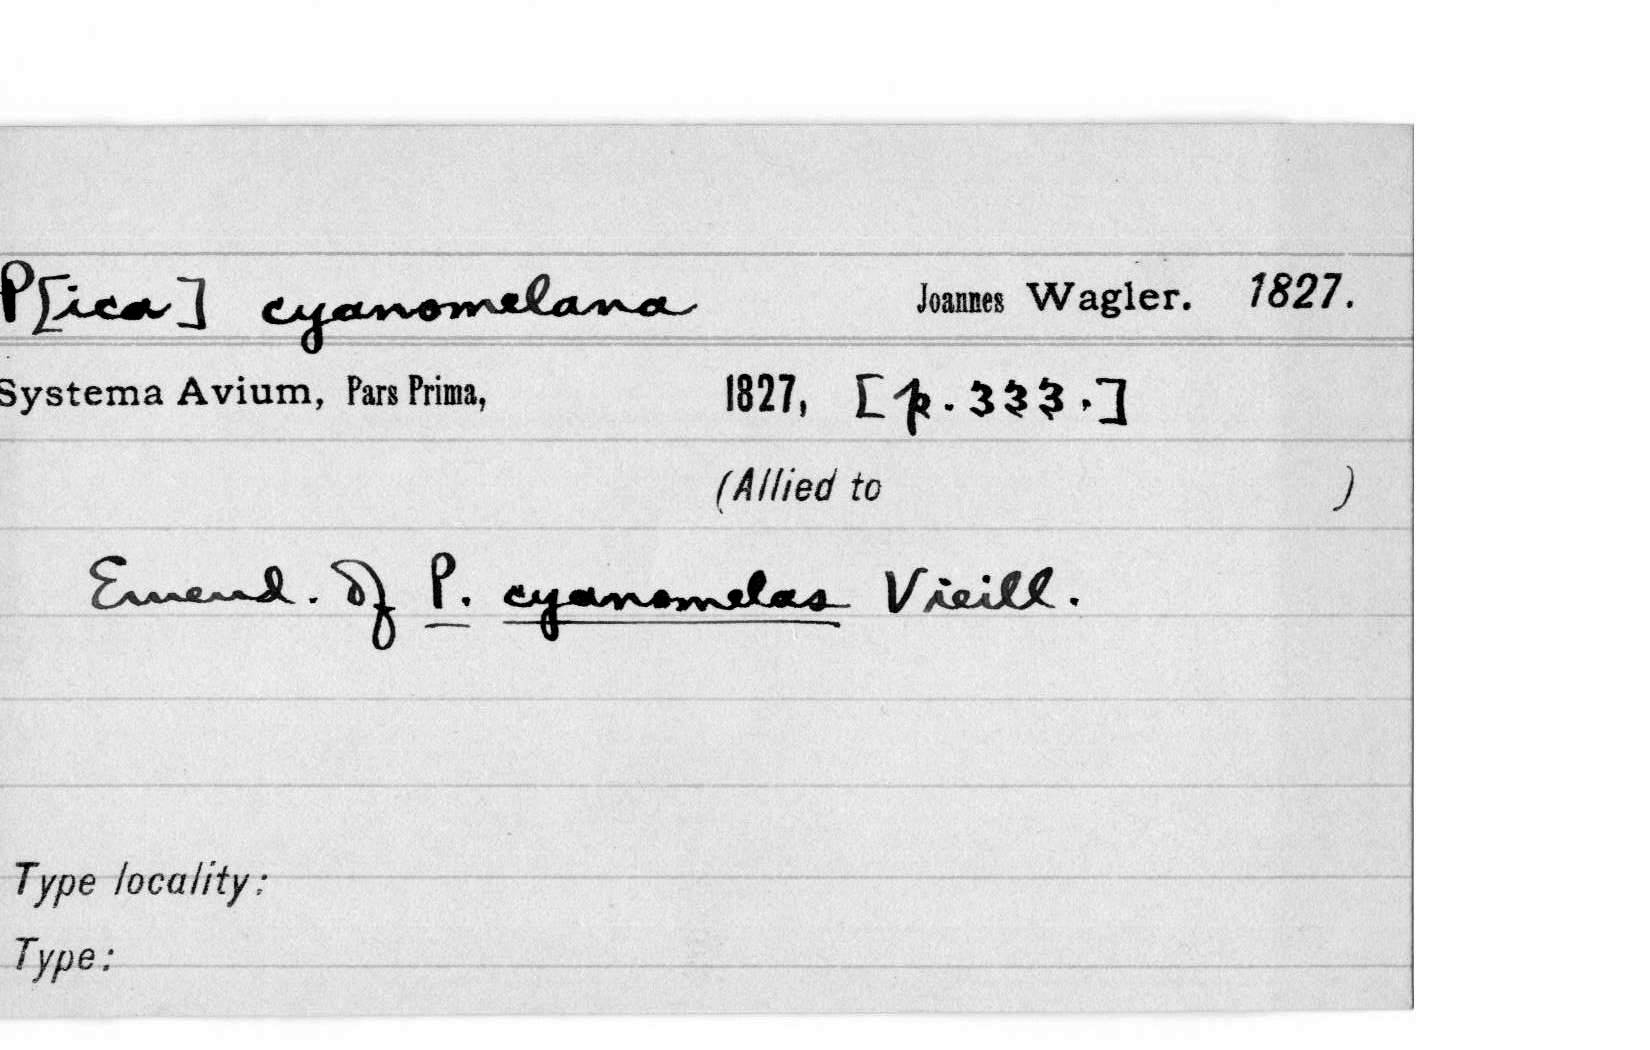 P[ica] cyanomelana Joannes Wagler. 1827.
Systema Avium, Pars Prima, 1827, [p. 333.]
(Allied to )
Emend. of P. cyanomelas Vieill.
Type locality:
Type: